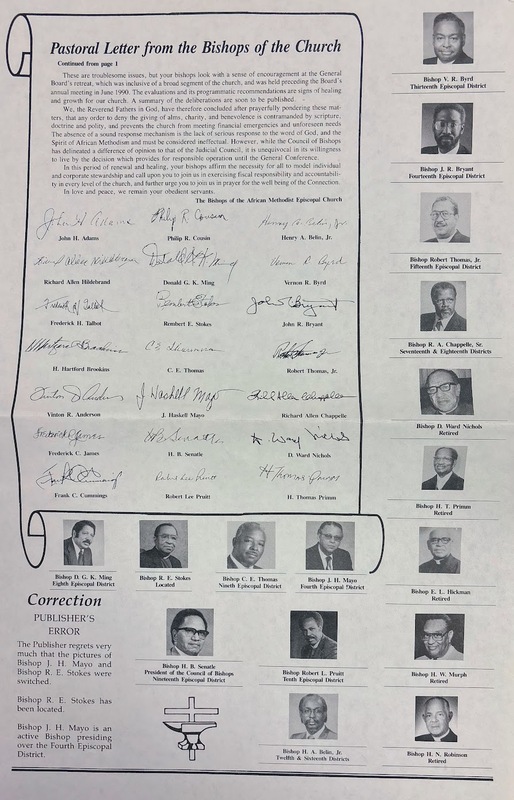 Pastoral Letter from the Bishops of the Church
Continued from page 1
These are troublesome issues, but your bishops look with a sense of encouragement at the General
Board's retreat, which was inclusive of a broad segment of the church, and was held preceding the Board's
annual meeting in June 1990. The evaluations and its programmatic recommendations are signs of healing
and growth for our church. A summary of the deliberations are soon to be published.
We, the Reverend Fathers in God, have therefore concluded after prayerfully pondering these mat-
ters, that any order to deny the giving of alms, charity, and benevolence is contramanded by scripture,
doctrine and polity, and prevents the church from meeting financial emergencies and unforeseen needs
The absence of a sound response mechanism is the lack of serious response to the word of God, and the
Spirit of African Methodism and must be considered ineffectual. However, while the Council of Bishops
has delineated a difference of opinion to that of the Judicial Council, it is unequivocal in its willingness
to live by the decision which provides for responsible operation until the General Conference.
In this period of renewal and healing, your bishops affirm the necessity for all to model individual
and corporate stewardship and call upon you to join us in exercising fiscal responsibility and accountabili-
ty in every level of the church, and further urge you to join us in prayer for the well being of the Connection.
In love and peace, we remain your obedient servants.
The Bishops of the African Methodist Episcopal Church
John H Adams Philip R Cousin Henry A. Belin, Jr.
John H. Adams Philip R. Cousin Henry A. Belin, Jr.
Richard Allen Hildebrand Donald G. K. Ming Vernon R Byrd
Richard Allen Hildebrand Donald G. K. Ming Vernon R. Byrd
Frederick H Talbot Rembert E Stokes John R Bryant
Frederick H. Talbot Rembert E. Stokes John R. Bryant
H Hartford Brookins C E Thomas Robert Thomas Jr
H. Hartford Brookins C. E. Thomas Robert Thomas, Jr.
Vinton R Anderson J Haskell Mayo Richard Allen Chappelle
Vinton R. Anderson J. Haskell Mayo Richard Allen Chappelle
Frederick C James H B Senatle D. Ward Nichols
Frederick C. James H. B. Senatle D. Ward Nichols
Frank C Cummings Robert Lee Pruitt H Thomas Primm
Frank C. Cummings Robert Lee Pruitt H. Thomas Primm
Bishop V. R. Byrd
Thirteenth Episcopal District
Bishop J. R. Bryant
Fourteenth Episcopal District
Bishop Robert Thomas, Jr.
Fifteenth Episcopal District
Bishop R. A. Chappelle, Sr.
Seventeenth & Eighteenth Districts
Bishop D. Ward Nichols
Retired
Bishop H. T. Primm
Retired
Bishop E. L. Hickman
Retired
Bishop H. W. Murph
Retired
Bishop H. N. Robinson
Retired
Bishop D. G. K. Ming
Eighth Episcopal District
Bishop R. E. Stokes
Located
Bishop C. E. Thomas
Nineth Episcopal District
Bishop J. H. Mayo
Fourth Episcopal District
Bishop H. B. Senatle
President of the Council of Bishops
Nineteenth Episcopal District
Bishop Robert L. Pruitt
Tenth Episcopal District
Bishop H. A. Belin, Jr.
Twelfth & Sixteenth Districts
Correction
PUBLISHER'S
ERROR
The Publisher regrets very
much that the pictures of
Bishop J. H. Mayo and
Bishop R. E. Stokes were
switched.
Bishop R. E. Stokes has
been located.
Bishop J. H. Mayo is an
active Bishop presiding
over the Fourth Episcopal
District.